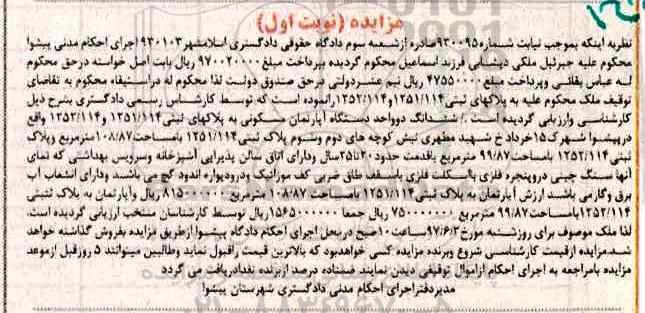 مزایده (نوبت اول)
نظریه اینکه بموجب نیابت شماره ۹۳۰۰۹۵صادره ازشعبه سوم دادگاه حقوقی دادگستری اسلامشهر۹۳۰۱۰۳اجرای احکام مدنی پیشوا
محکوم علیه جبرئیل ملکی دیشابی فرزند اسماعیل محکوم گردیده بپرداخت مبلغ۹۷۰۰۲۰۰۰۰ ریال بابت اصل خواسته درحق محکوم
لـه عباس یقائی وپرداخت مبلغ۴۷۵۵۰۰۰۰ ریال نیم عشردولتی درحق صندوق دولت لذا محکوم له دراستیفاء محکوم به تقاضای
توقیف ملک محکوم علیه به پلاکهای ثبتی۱۲۵۱/۱۱۴و۱۲۵۲/۱۱۴رانموده است که توسط کارشناس رسمی دادگستری بشرح ذیل
کارشناسی وارزیابی گردیده است ./ ششدانگ دوواحد دستگاه آپارتمان مسکونی به پلاکهای ثبتی۱۲۵۱/۱۱۴ و۱۲۵۲/۱۱۴ واقع
درپیشوا شهرک۱۵خرداد خ شهید مطهری نبش کوچه های دوم وسوم پلاک ثبتی۱۲۵۱/۱۱۴ بامساحت۱۰۸/۸۷مترمربع وپلاک
ثبتی۱۲۵۲/۱۱۴ بامساحت۹۹/۸۷ مترمربع باقدمت حدود۲۰تا۲۵سال ودارای اتاق سالن پذیرایی آشپزخانه وسرویس بهداشتی که نمای
آنها سنگ چینی دروپنجره فلزی بااسکلت فلزی باسقف طاق ضربی کف موزائیک ودرودیواره اندود گچ می باشد ودارای انشعاب آب
برق وگازمی باشد ارزش آپارتمان به پلاک ثبتی۱۲۵۱/۱۱۴ بامساحت ۱۰۸/۸۷ مترمربع ۸۱۵۰۰۰۰۰۰ ریال وآپارتمان به پلاک ثبتی
۱۲۵۲/۱۱۴بامساحت۹۹/۸۷ مترمربع ۷۵۰۰۰۰۰۰۰ ریال جمعا ۱۵۶۵۰۰۰۰۰۰ریال توسط کارشناسان منتخب ارزیابی گردیده است.
لذا ملک موصوف برای روزشنبه مورخ۹۷/۶/۳ساعت۱۰صبح درمحل اجرای احکام دادگاه پیشوا ازطریق مزایده بفروش گذاشته خواهد
شد.مزایده ازقیمت کارشناسی شروع وبرنده مزایده کسی خواهدبود که بالاترین قیمت راقبول نماید وطالبین میتوانند ۵ روزقبل ازموعد
مزایده بامراجعه به اجرای احکام ازاموال توقیفی دیدن نمایند ضمناده درصد ازبرنده نقدادریافت می گردد
مدیردفتراجرای احکام مدنی دادگستری شهرستان پیشوا